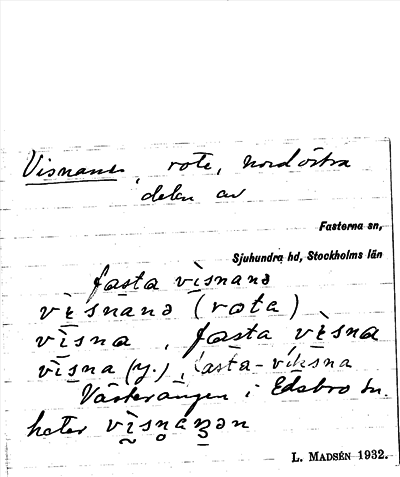 Visnano, rote, nordöstra
delen av
Fasterna sn,
Sjuhundra hd, Stockholms län
fasta vìsnanə
vìsnanə (rota)
vìsna, fasta vìsna
vìsna (y.), fasta-víksna
Västerängen i Edsbro sn.
heter
L. MADSÉN 1932.